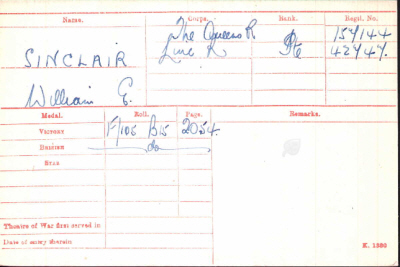 Name. Corps. Rank. Regtl. No.
The Queens R. 154144
SINCLAIR Linc R. Pte 42747.
William E.
Medal. Roll. Page. Remarks.
Victory F/105 B15 2054.
British do
Star
Theatre of War first served in
Date of entry therein
K. 1380